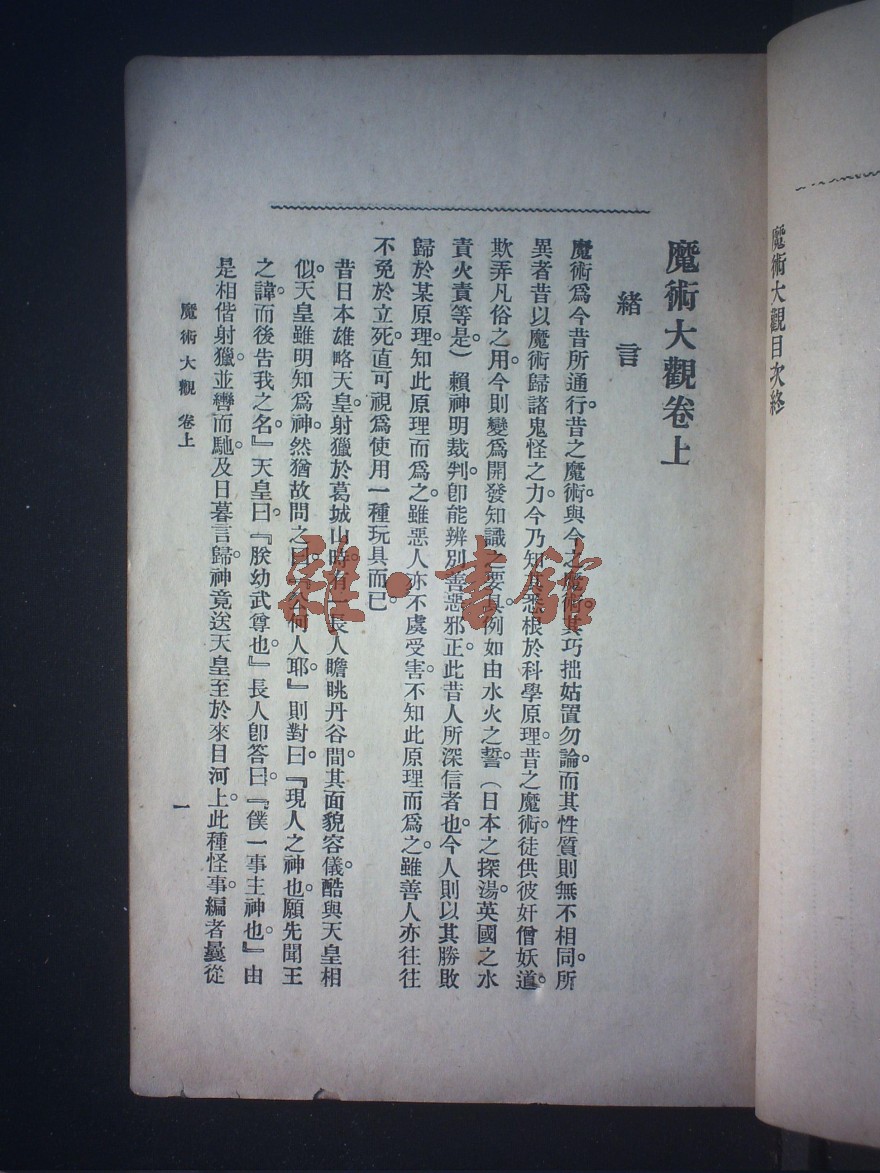 魔術大觀目次終
魔術大觀卷上
緒言
魔術爲今昔所通行。昔之魔術。與今之魔術。其巧拙姑置勿論。而其性質則無不相同。所
異者昔以魔術歸諸鬼怪之力。今乃知其悉根於科學原理。昔之魔術。徒供彼奸僧妖道。
欺弄凡俗之用。今則變爲開發知識之要具。例如由水火之誓。（日本之探湯。英國之水
責火責等是。）賴神明裁判。卽能辨別善惡邪正。此昔人所深信者也。今人則以其勝敗
歸於某原理。知此原理而爲之。雖惡人亦不虞受害。不知此原理而爲之。雖善人亦往往
不免於立死。直可視爲使用一種玩具而已。
昔日本雄略天皇。射獵於葛城山。時有一長人瞻眺丹谷間。其面貌容儀。酷與天皇相
似。天皇雖明知爲神。然猶故問之曰。『公何人耶。』則對曰。『現人之神也。願先聞王
之諱。而後吿我之名。』天皇曰。『朕幼武尊也。』長人卽答曰。『僕一事主神也。』由
是相偕射獵。並轡而馳。及日暮言歸。神竟送天皇至於來目河上。此種怪事。編者曩從
魔術大觀 卷上
一
雜·書館